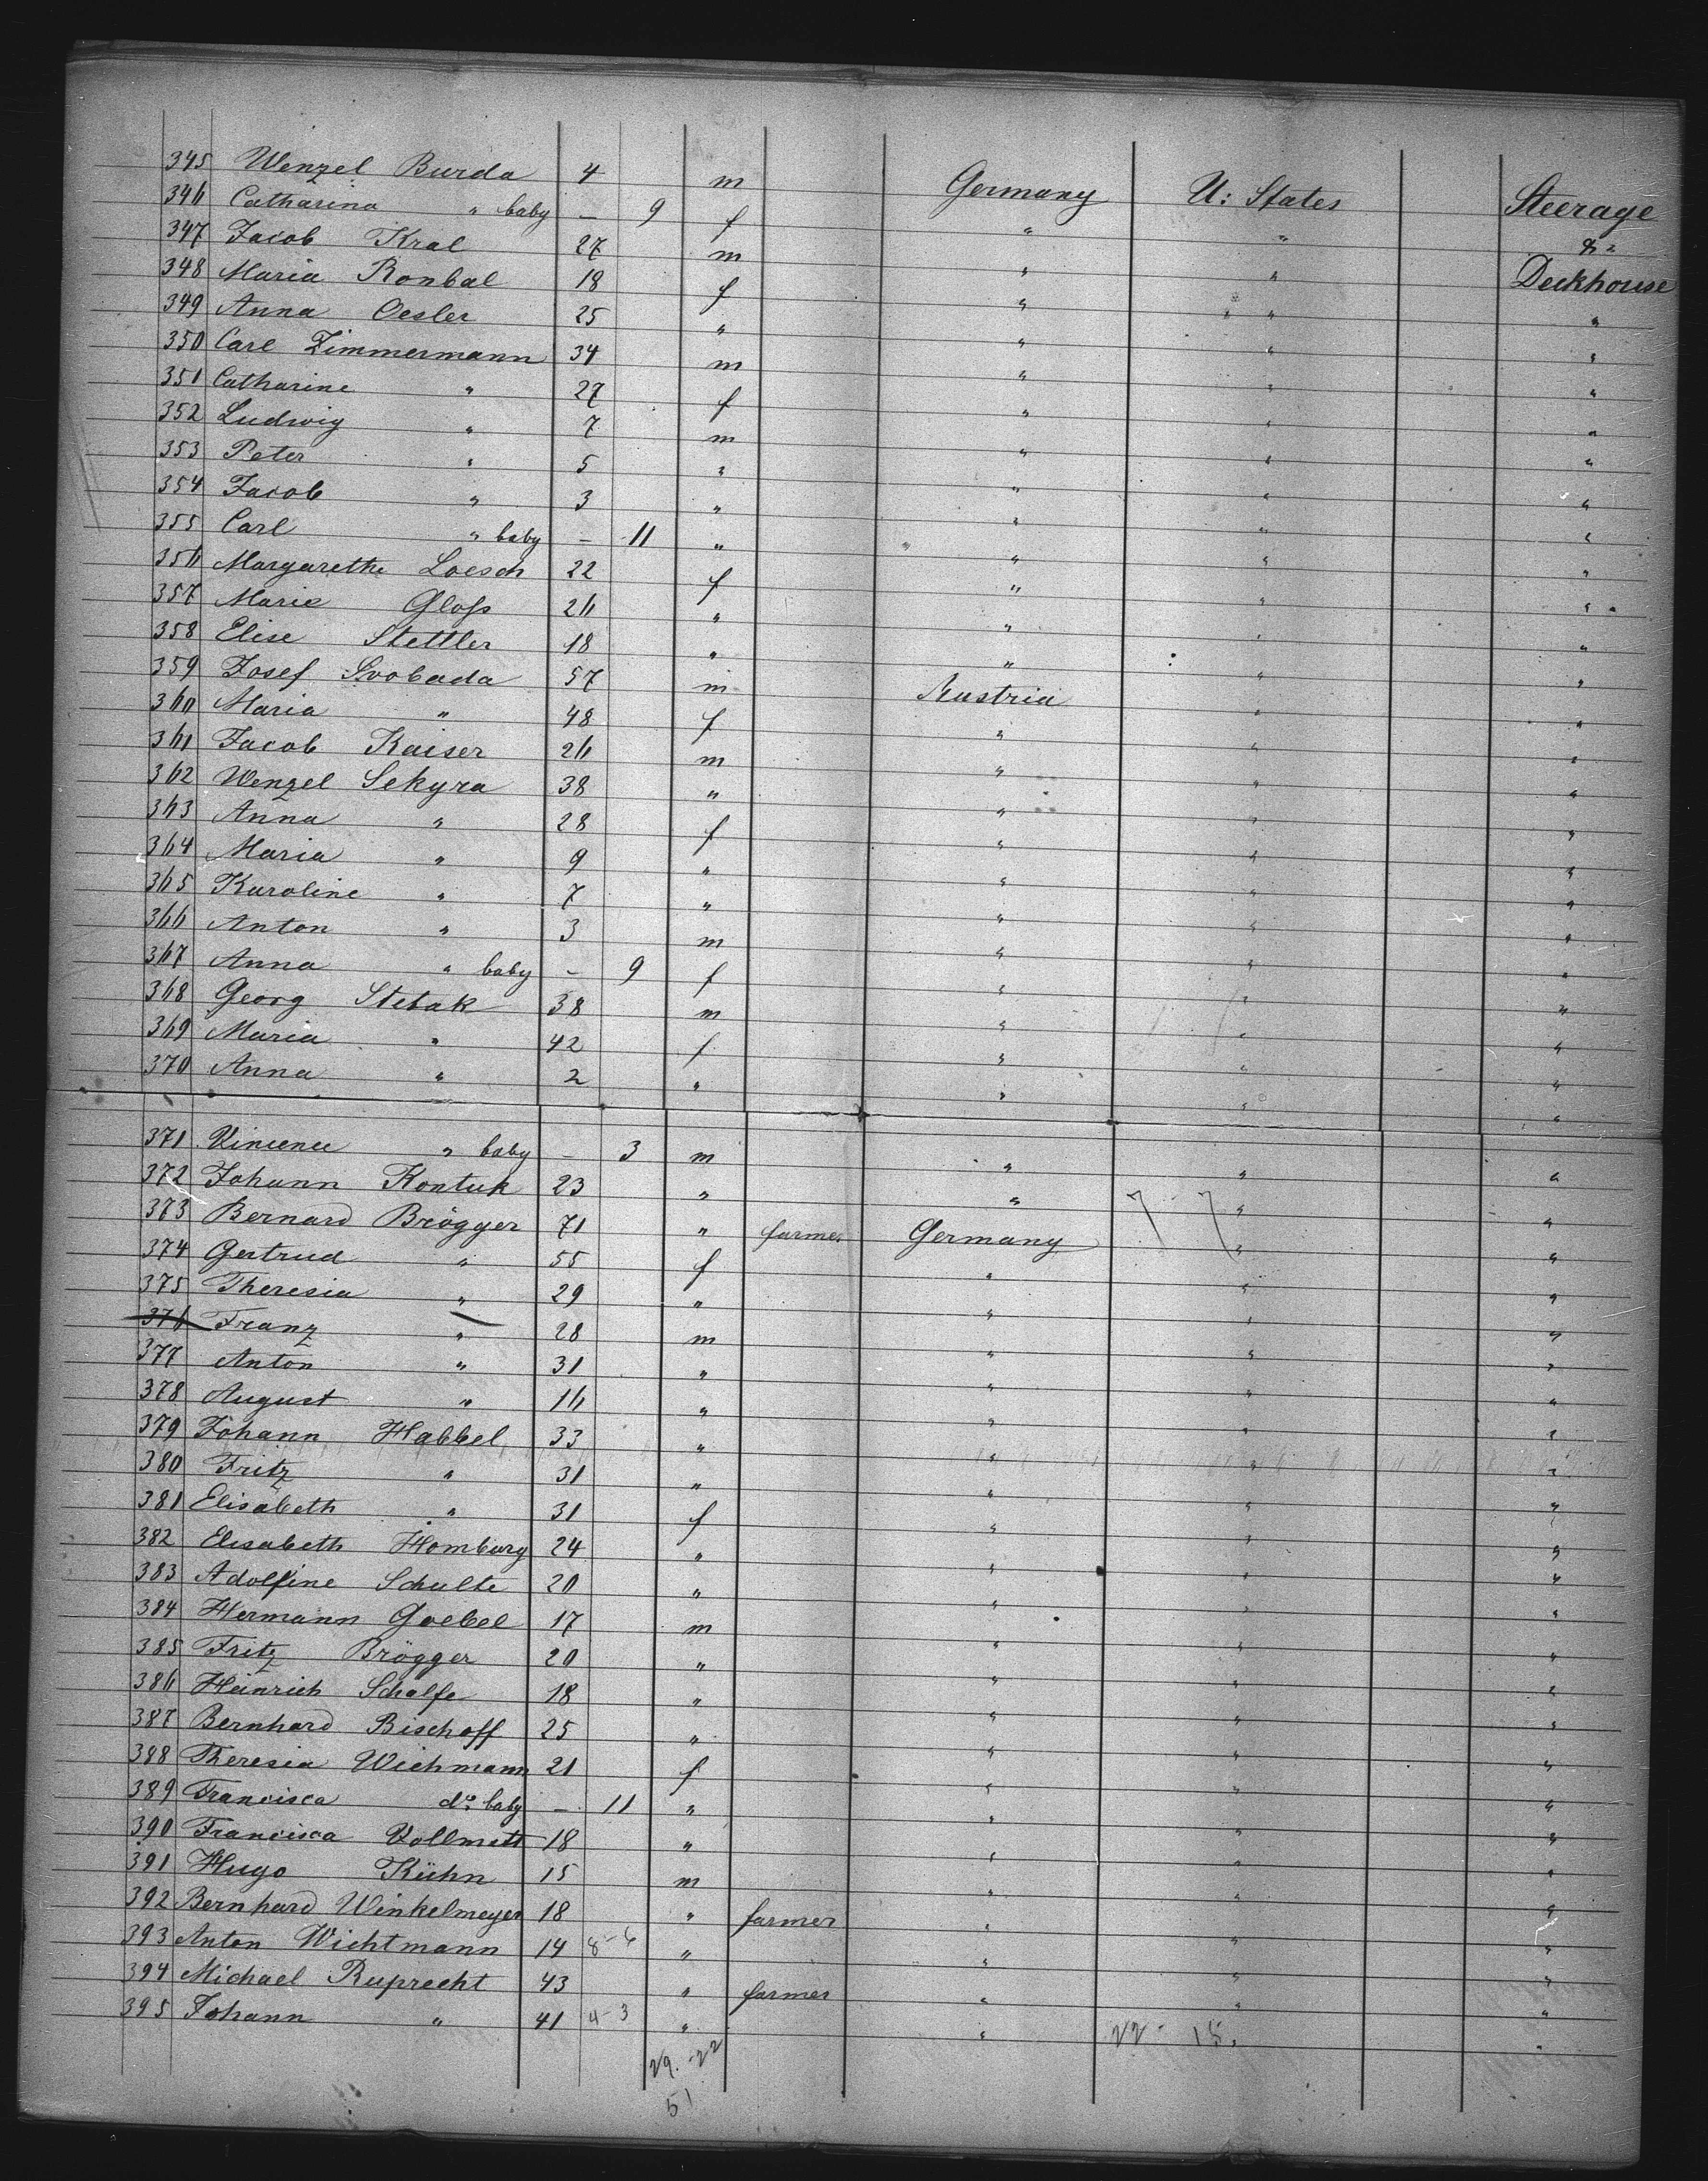 345 Wenzel Burda 4 m Germany U: States Steerage
346 Catharina " baby – 9 f " " &
347 Jacob Kral 27 m " " Deckhouse
348 Maria Ronbal 18 f " " "
349 Anna Oesler 25 " " " "
350 Carl Zimmermann 34 m " " "
351 Catharine " 27 f " " "
352 Ludwig " 7 m " " "
353 Peter " 5 " " " "
354 Jacob " 3 " " " "
355 Carl " baby – 11 " " " "
356 Margarethe Loesch 22 f " " "
357 Marie Gloss 26 " " " "
358 Elise Stettler 18 " " " "
359 Josef Svoboda 57 m Austria " "
360 Maria " 48 f " " "
361 Jacob Kaiser 26 m " " "
362 Wenzel Sekyra 38 " " " "
363 Anna " 28 f " " "
364 Maria " 9 " " " "
365 Karoline " 7 " " " "
366 Anton " 3 m " " "
367 Anna " baby – 9 f " " "
368 Georg Stebak 38 m " " "
369 Maria " 42 f " " "
370 Anna " 2 " " " "
371 " baby – 3 m " " "
372 Johann Kontuk 23 " " " "
373 Bernard Brögger 71 " farmer Germany " "
374 Gertrud " 55 f " " "
375 Theresia " 29 " " " "
376 Franz " 28 m " " "
377 Anton " 31 " " " "
378 August " 16 " " " "
379 Johann Habbel 33 " " " "
380 Fritz " 31 " " " "
381 Elisabeth " 31 f " " "
382 Elisabeth Homburg 24 " " " "
383 Adolfine Schulte 20 " " " "
384 Hermann Goebel 17 m " " "
385 Fritz Brögger 20 " " " "
386 Heinrich Scholfe 18 " " " "
387 Bernhard Bischoff 25 " " " "
388 Theresia Wichmann 21 f " " "
389 Francisca do baby – 11 " " " "
390 Francisca Vollmett 18 " " " "
391 Hugo Kühn 15 m " " "
392 Bernhard Winkelmeyer 18 " farmer " " "
393 Anton Wichtmann 14 8-6 " " " "
394 Michael Ruprecht 43 " farmer " " "
395 Johann " 41 4-3 " " " "
29.-22 22- 15.
51